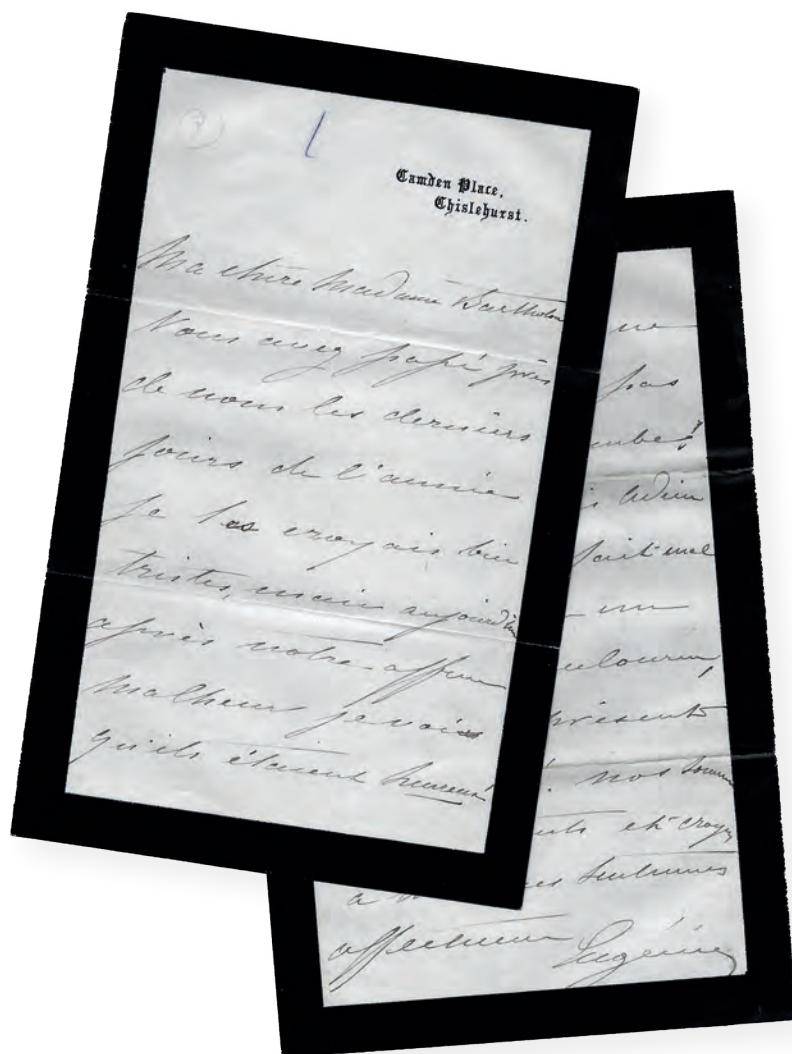 Camden Place,
Chislehurst.
Ma chère Madame Bartholoni
Vous avez passé près
de nous les derniers
jours de l'année
je les croyais bien
tristes, mais aujourd'hui
après notre affreux
malheur je vois
qu'ils étaient heureux
ne
pas
adieu
fait mal
un
douloureux,
présent
nos
et croyez
a
affectueux Eugénie